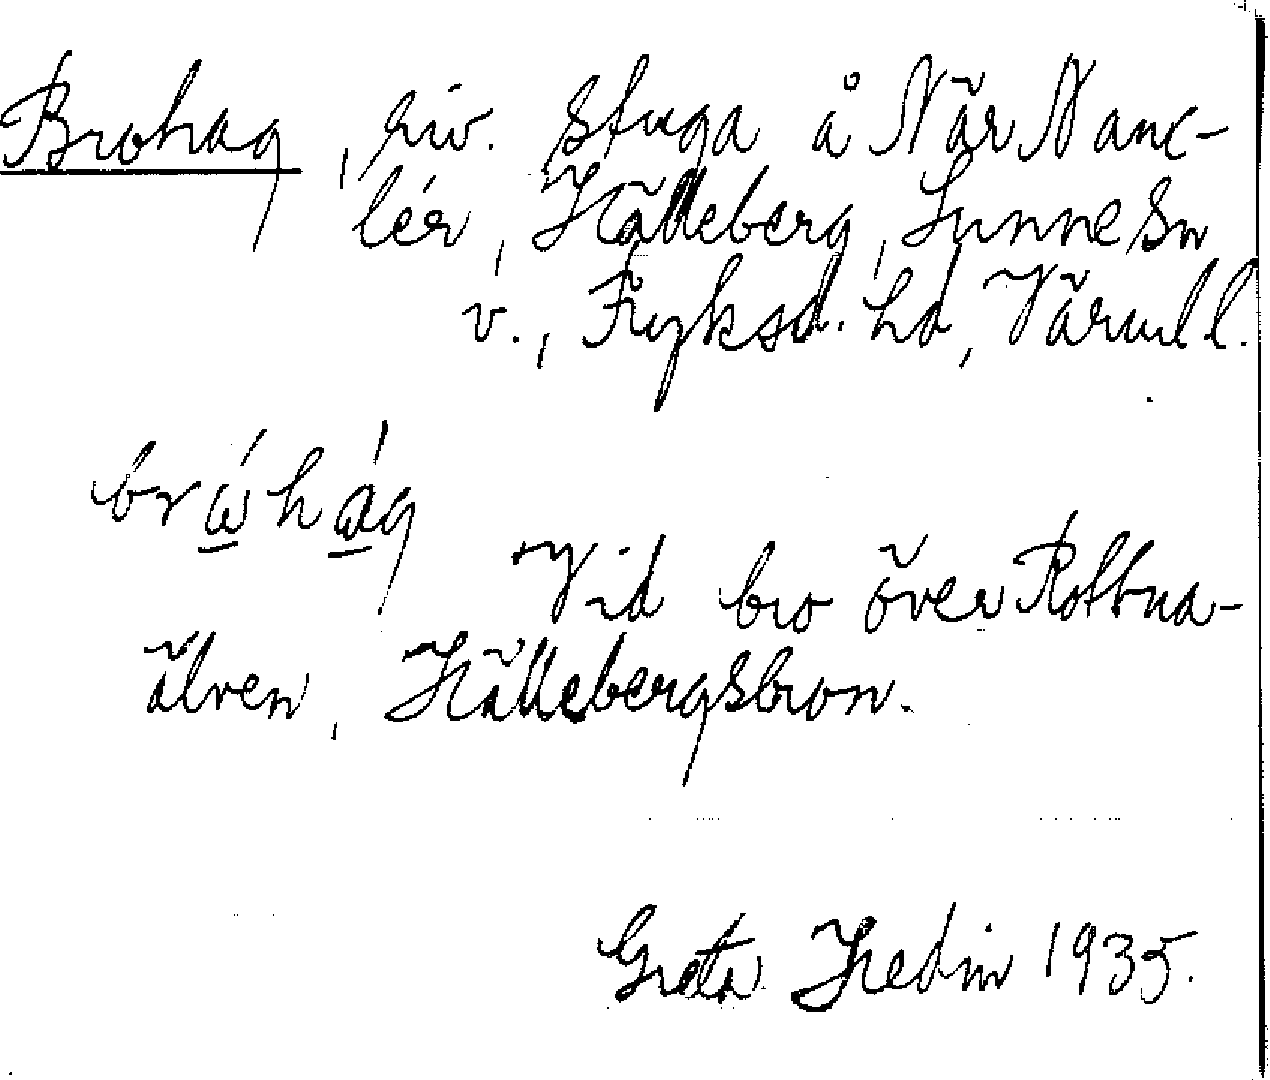 Brohag, riv. stuga å När Nanc-
lér, Hälleberg, Sunne sn
v., Fryksd. hd, Värml.
brώhág
Vid bro över Rottna-
älven, Hällebergsbron.
Greta Hedin 1935.